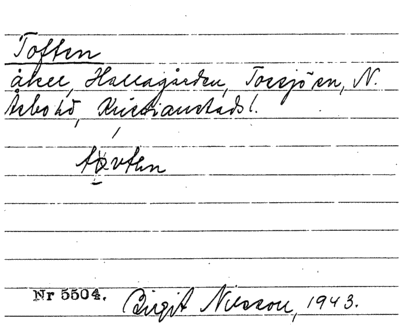 Toften
åker, Hallagården, Torsjö sn, N.
Åsbo hd, Kristianstads l.
tøvtn
Nr 5504. Birgit Nilsson, 1943.